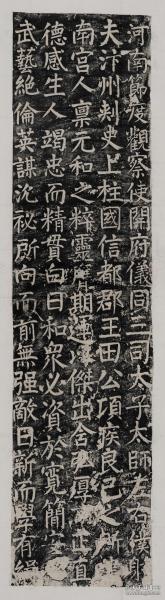 河南節度觀察使開府儀同三司太子太師左僕射
夫汴州刾史上柱國信都郡王田公頃疾良已之所
南宫人稟元和之粹靈膺期運傑出含弘厚正直
德感生人竭忠而精貫白日和衆必資於寛簡
武藝絕倫英謀沉祕所向而前無强敵日新而學有緝